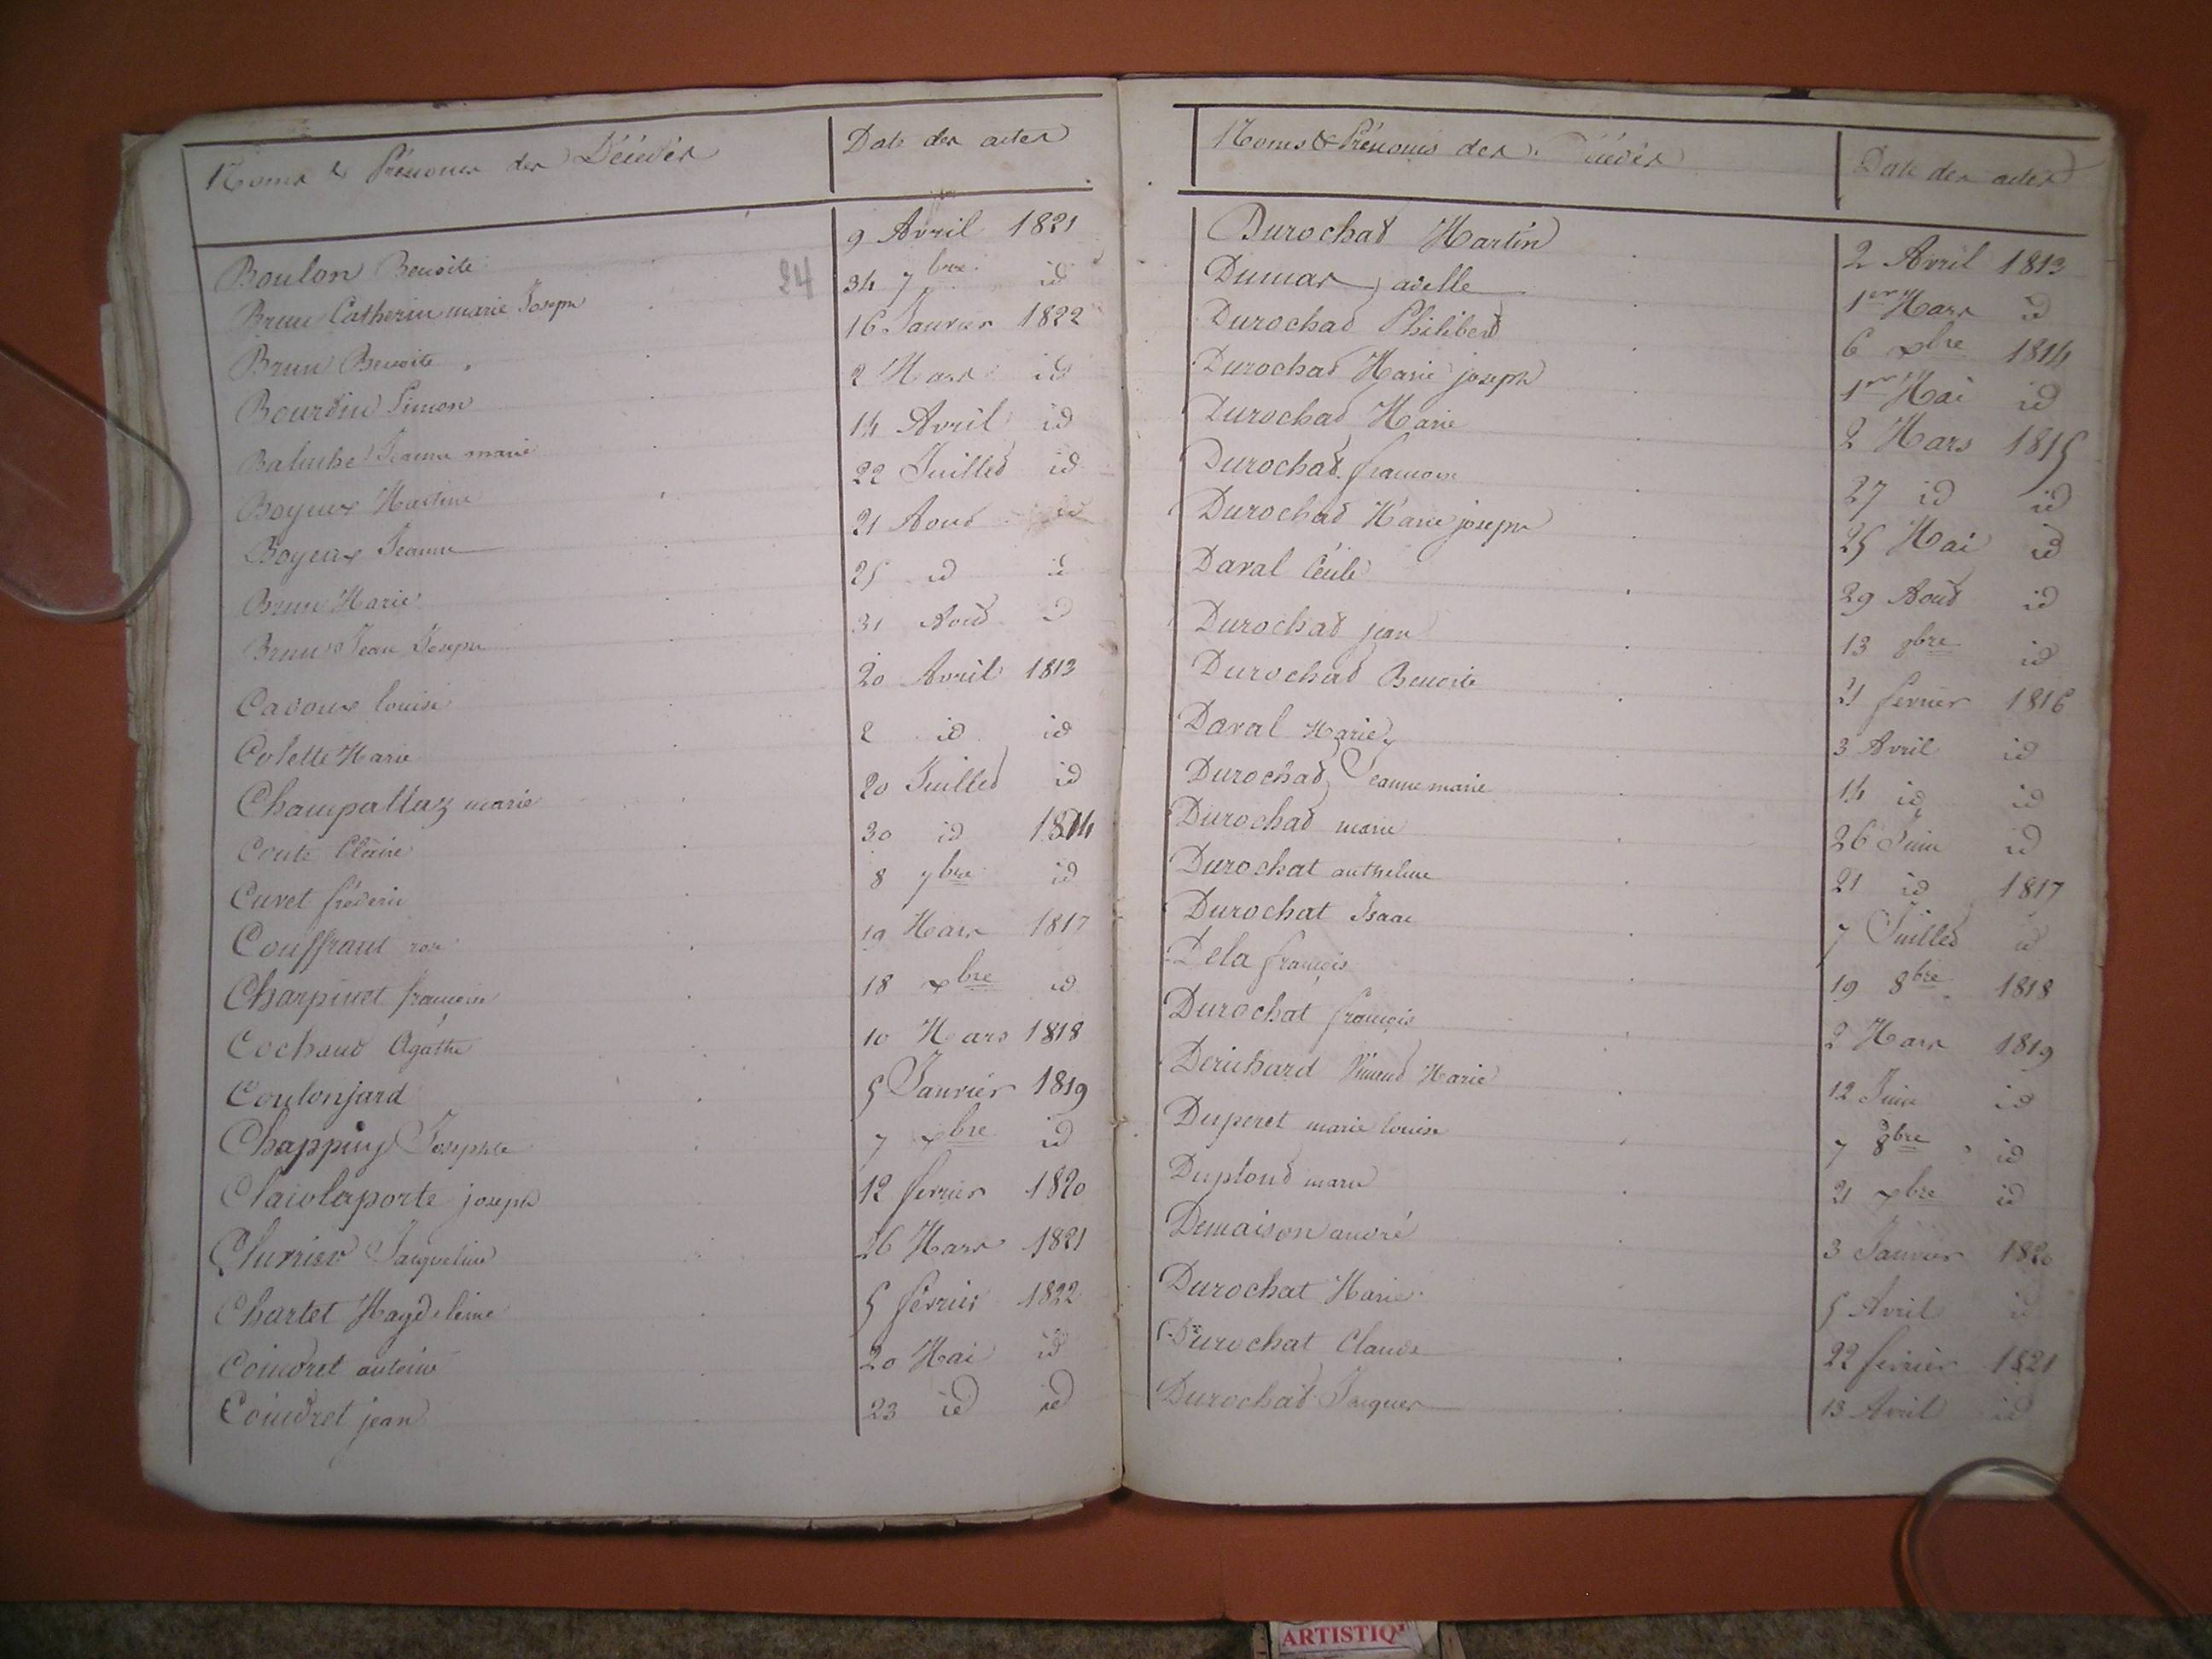 Noms & Prénoms des Décédés Date des actes
Boulon Benoite 9 Avril 1821
Brun Catherine marie Joseph 24 34 7bre id
Brun Benoite 16 Janvier 1822
Bourdin Simon 2 Mars id
Baluche Jeanne marie 14 Avril id
Boyeux Martine 22 Juillet id
Boyeux Jeanne 21 Aout id
Brun Marie 25 id id
Brun Jean Joseph 31 Aout id
Cadoux louise 20 Avril 1813
Colette Marie 2 id id
Champallaz marie 20 Juillet id
Coute Claire 30 id 1814
Curet fréderic 8 7bre id
Couffrant rose 19 Mars 1817
Charpinet francoise 18 xbre id
Cochaud Agathe 10 Mars 1818
Coulonjard 5 Janvier 1819
Chappuy Josephte 7 xbre id
Claiolaporte joseph 12 fevrier 1820
Jacqueline 26 Mars 1821
Chartet Magdeleine 5 février 1822
Coindret antoine 20 Mai id
Coindret jean 23 id id
Noms & Prénoms des Décédés Date des actes
Durochat Martin 2 Avril 1813
Dumas adelle 1er Mars id
Durochat Philibert 6 xbre 1814
Durochat Marie joseph 1er Mai id
Durochat Marie 2 Mars 1815
Durochat francoise 27 id id
Durochat Marie joseph 25 Mai id
Daval Cécile 29 Aout id
Durochat jean 13 9bre id
Durochat Benoite 21 fevrier 1816
Daval Marie 3 Avril id
Durochat Jeanne marie 14 id id
Durochat marie 26 Juin id
Durochat anthelme 21 id 1817
Durochat Isaac 7 Juillet id
Dela françois 19 8bre 1818
Durochat françois 2 Mars 1819
Derichard Marie 12 Juin id
Duperet marie louise 7 8bre id
Duplond marie 21 xbre id
Demaison andré 3 Janvier 1820
Durochat Marie 5 Avril id
Durochat Claude 22 fevrier 1821
Durochat Jacques 13 Avril id
ARTISTIQ